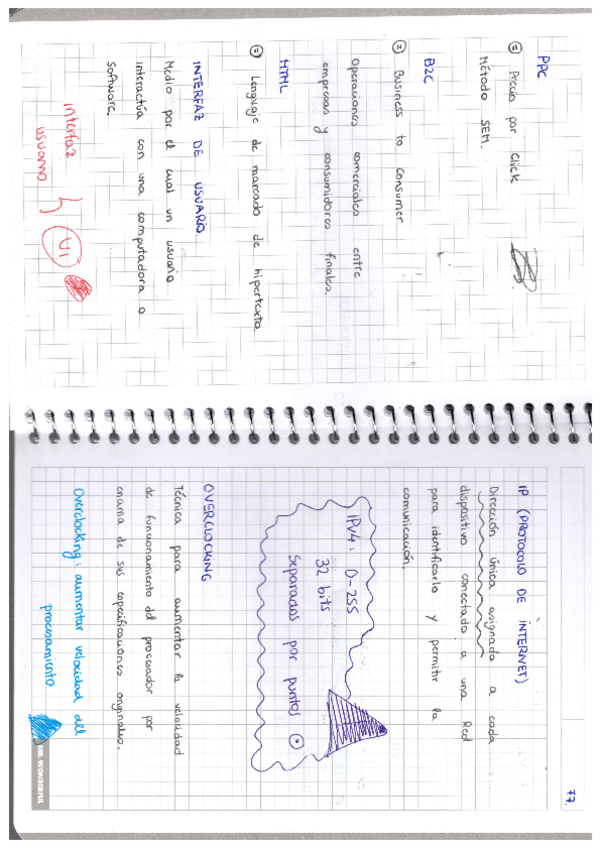 PPC
= Precio por Click
Método SEM.
B2C
= Business to Consumer
Operaciones comerciales entre
empresas y consumidores finales.
HTML
= Lenguaje de marcado de hipertexto.
INTERFAZ DE USUARIO.
Medio por el cual un usuario
interactúa con una computadora o
software.
interfaz
usuario
UI
77.
IP (PROTOCOLO DE INTERNET)
Dirección única asignada a cada
dispositivo conectado a una Red
para identificarlo y permitir la
comunicación.
IPv4: 0-255
32 bits
Separados por puntos
OVERCLOCKING
Técnica para aumentar la velocidad
de funcionamiento del procesador por
encima de sus especificaciones originales.
Overclocking: aumentar velocidad del
procesamiento
MR. WONDERFUL